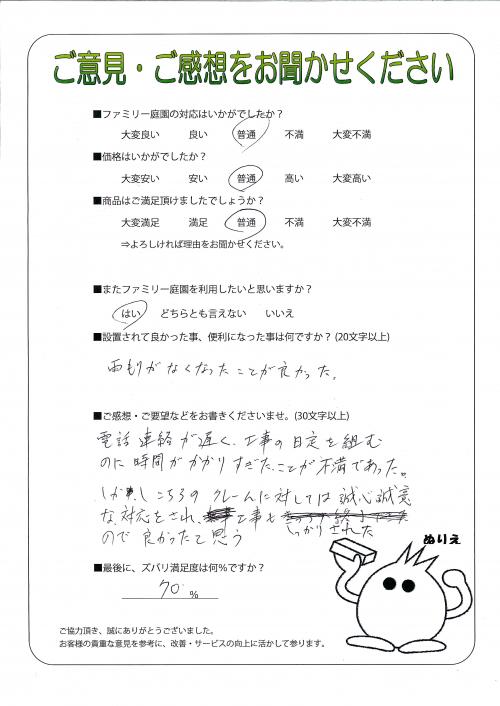 ご意見・ご感想をお聞かせください
■ファミリー庭園の対応はいかがでしたか？
大変良い 良い 普通 不満 大変不満
■価格はいかがでしたか？
大変安い 安い 普通 高い 大変高い
■商品はご満足頂けましたでしょうか？
大変満足 満足 普通 不満 大変不満
⇒よろしければ理由をお聞かせください。
■またファミリー庭園を利用したいと思いますか？
はい どちらとも言えない いいえ
■設置されて良かった事、便利になった事は何ですか？(20文字以上)
雨もりがなくなったことが良かった。
■ご感想・ご要望などをお書きくださいませ。(30文字以上)
電話連絡が遅く、工事の日定を組む
のに時間がかかりすぎたことが不満であった。
しかし、こちらのクレームに対しては誠心誠意
な対応をされ、工事も
しっかりされた
ので良かったと思う
ぬりえ
■最後に、ズバリ満足度は何%ですか？
70 %
ご協力頂き、誠にありがとうございました。
お客様の貴重な意見を参考に、改善・サービスの向上に活かして参ります。